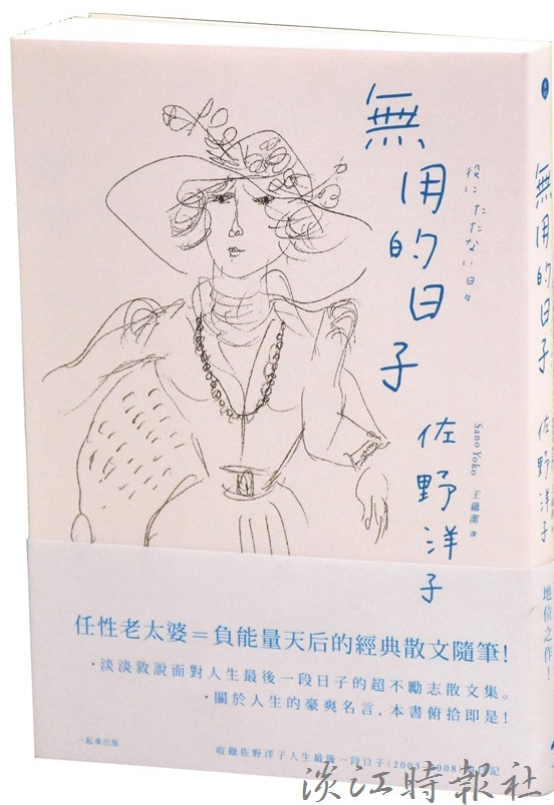 無用的日子
役にたたない日々
佐野洋子
Sano Yoko 王蘊潔 譯
任性老太婆=負能量天后的經典散文隨筆!
・淡淡敘說面對人生最後一段日子的超不勵志散文集。
・關於人生的豪爽名言、本書俯拾即是!
一起來出版
收錄佐野洋子人生最後一段日子(2003-2008)
記
無用的日子
佐野洋子
地位之作!
淡江時報社